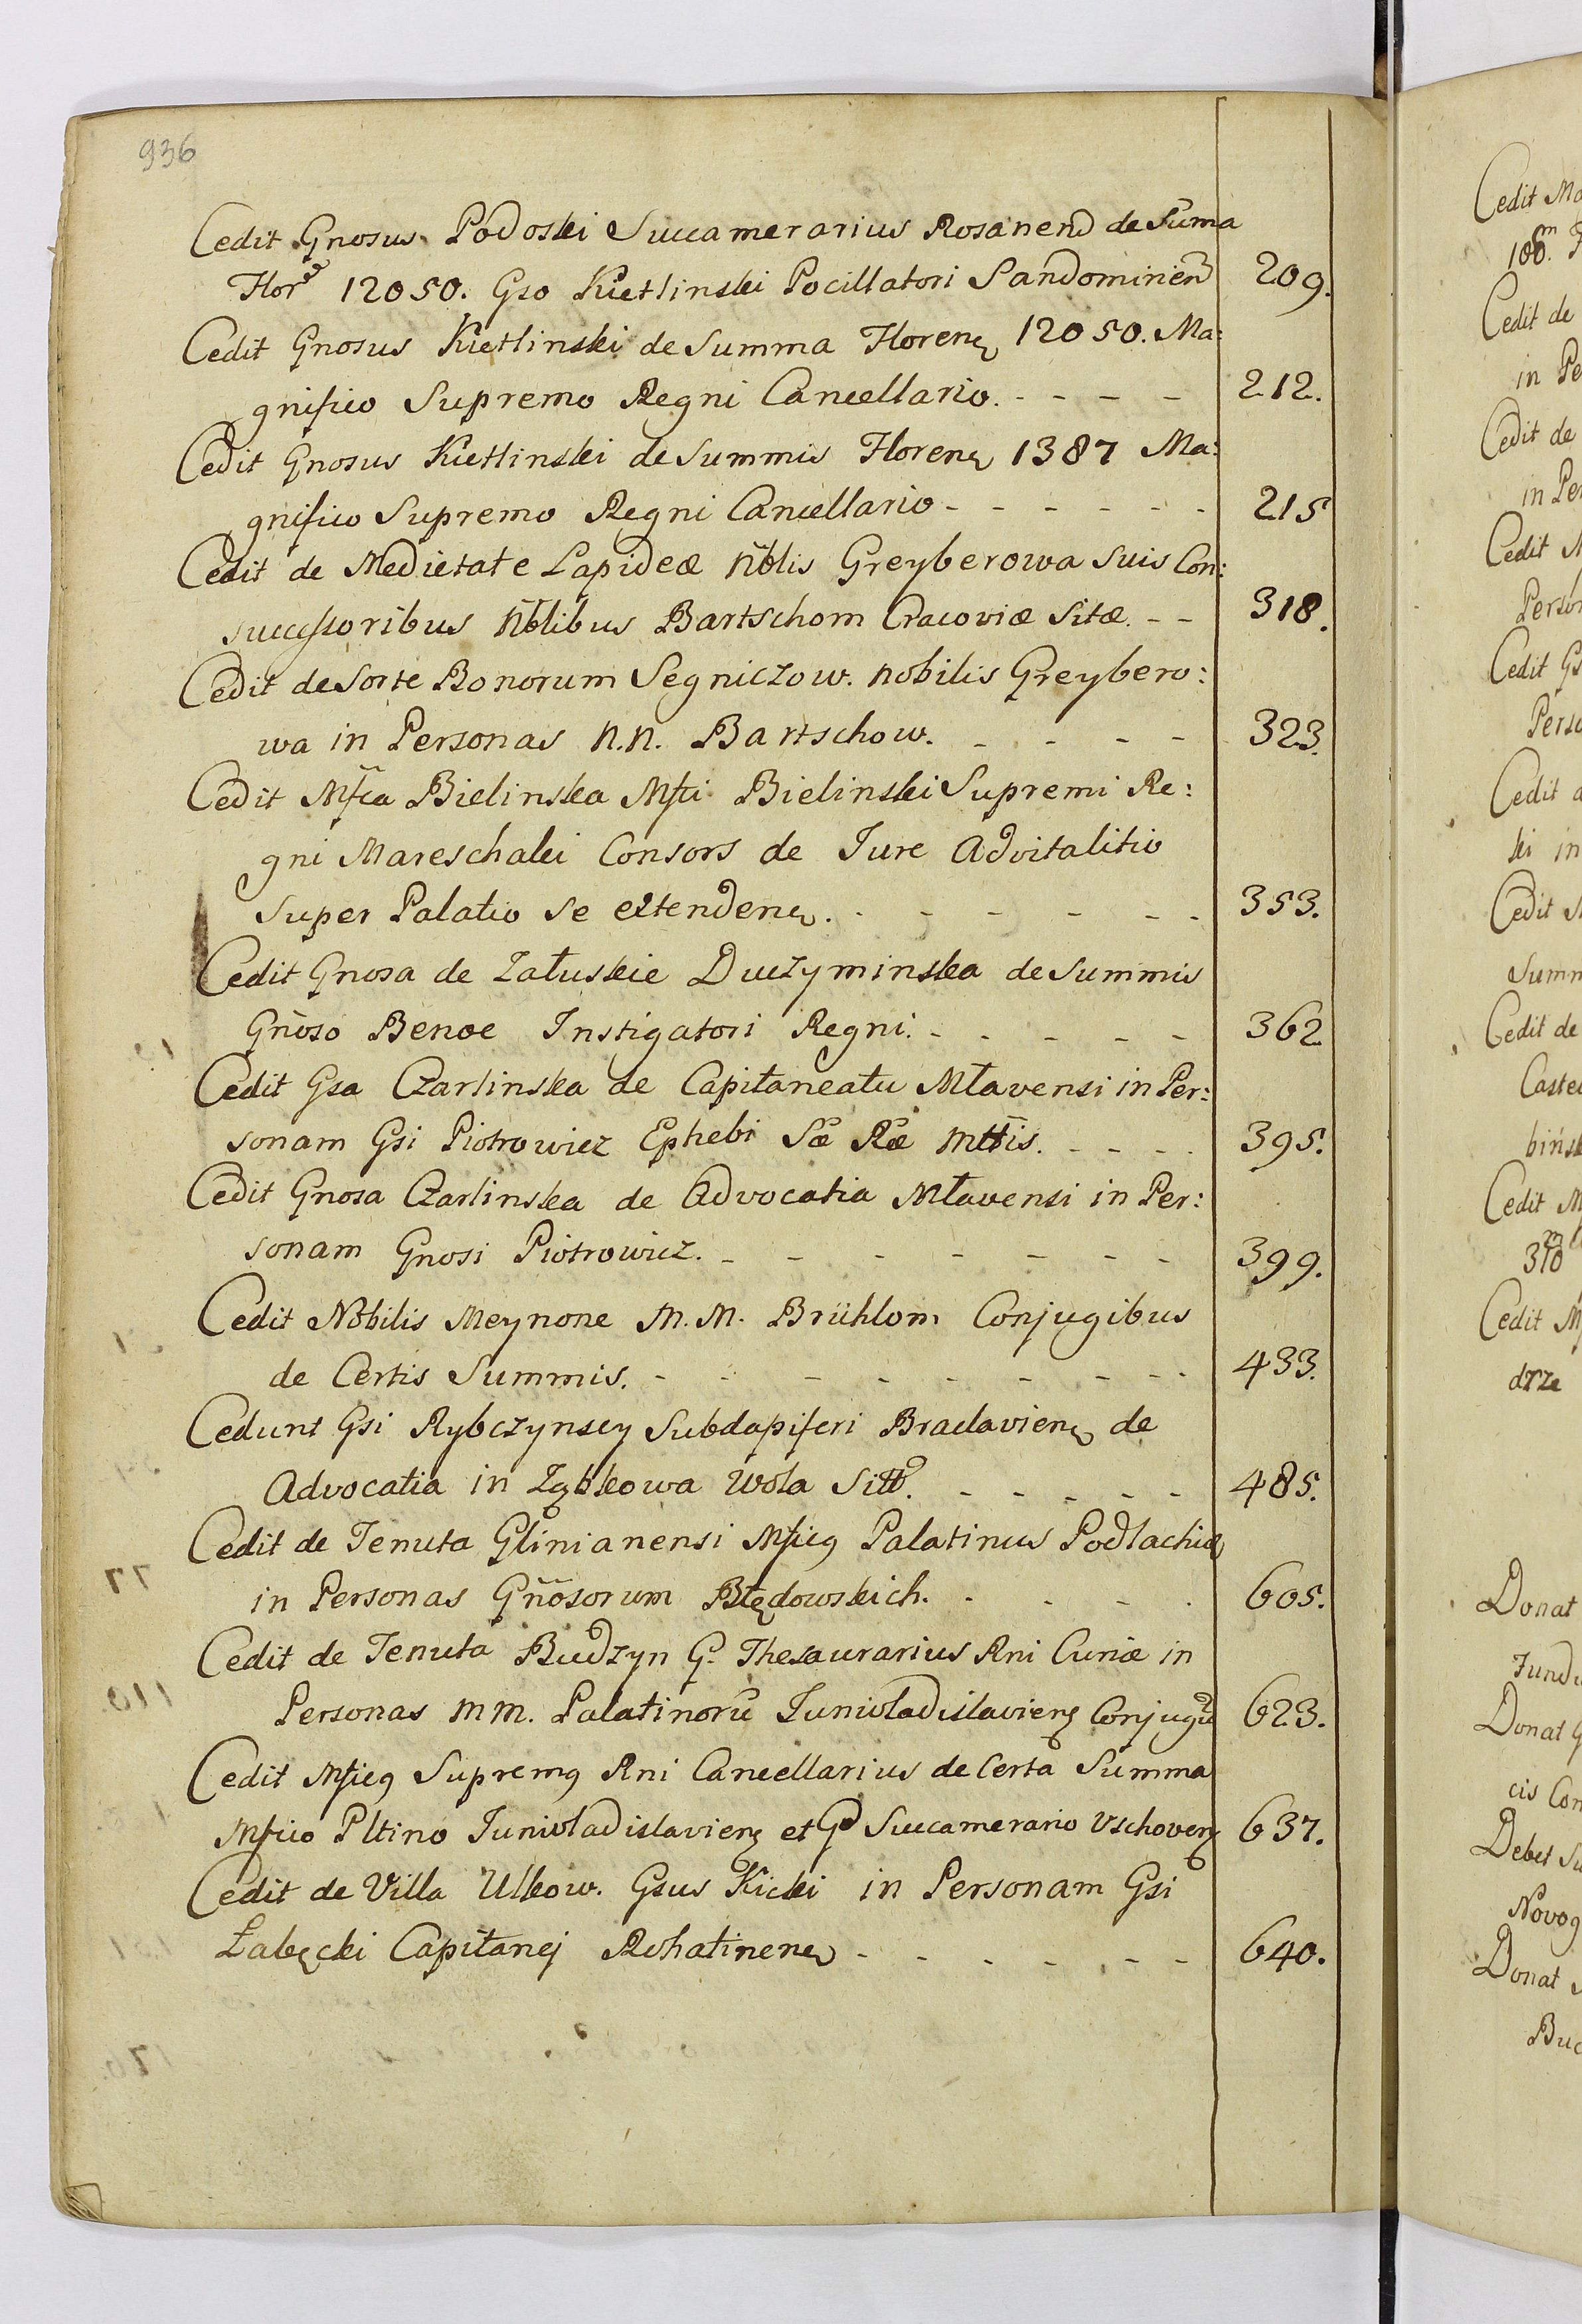 936
Cedit Gnosus Podoski Succamerarius Rosanen de Suma
Flor 12050. Gso Kietlinski Pocillatori Sandomirien 209.
Cedit Gnosus Kietlinski de Summa Floren 12050. Ma:
gnifico Supremo Regni Cancellario. - - - - 212.
Cedit Gnosus Kietlinski de Summis Floren 1387 Ma:
gnifico Supremo Regni Cancellario - - - - - - 215
Cedit de Medietate Lapideæ Nblis Greyberowa Suis Con:
successoribus Nblibus Bartschom Cracoviæ Sitæ. - - 318.
Cedit de Sorte Bonorum Segniczow. nobilis Greybero:
wa in Personas N.N. Bartschow. - - - - 323.
Cedit Mfca Bielinska Mfci Bielinski Supremi Re:
gni Mareschalci Consors de Jure Advitalitio
Super Palatio se extenden. - - - - - - 353.
Cedit Gnosa de Załuskie Duczyminska de Summis
Gnoso Benoe Instigatori Regni. - - - - - 362
Cedit Gsa Czarlinska de Capitaneatu Mławensi in Per:
sonam Gsi Piotrowicz Ephebi Sæ Ræ Mttis. - - - - 395.
Cedit Gnosa Czarlinska de Advocatia Mławensi in Per:
sonam Gnosi Piotrowicz. - - - - - - - 399.
Cedit Nobilis Meynone M.M. Brühlom Conjugibus
de Certis Summis. - - - - - - - - 433.
Cedunt Gsi Rybczynscy Subdapiferi Braclavien de
Advocatia in Ząbkowa Wola Sitt. - - - - - 485.
Cedit de Tenuta Glinianensi Mficg Palatinus Podlachiæ
in Personas Gnosorum Błędowskich. - - - - 605.
Cedit de Tenuta Budzyn G. Thesaurarius Rni Curiæ in
Personas M M. Palatinorū Juniwladislavien Conjugū 623.
Cedit Mficg Supremg Rni Cancellarius de Certa Summa
Mfico Pltino Juniwladislavien et G Succamerario Vschoven 637.
Cedit de Villa Ulkow. Gsus Kicki in Personam Gsi
Łabęcki Capitanej Rohatinen - - - - - - 640.